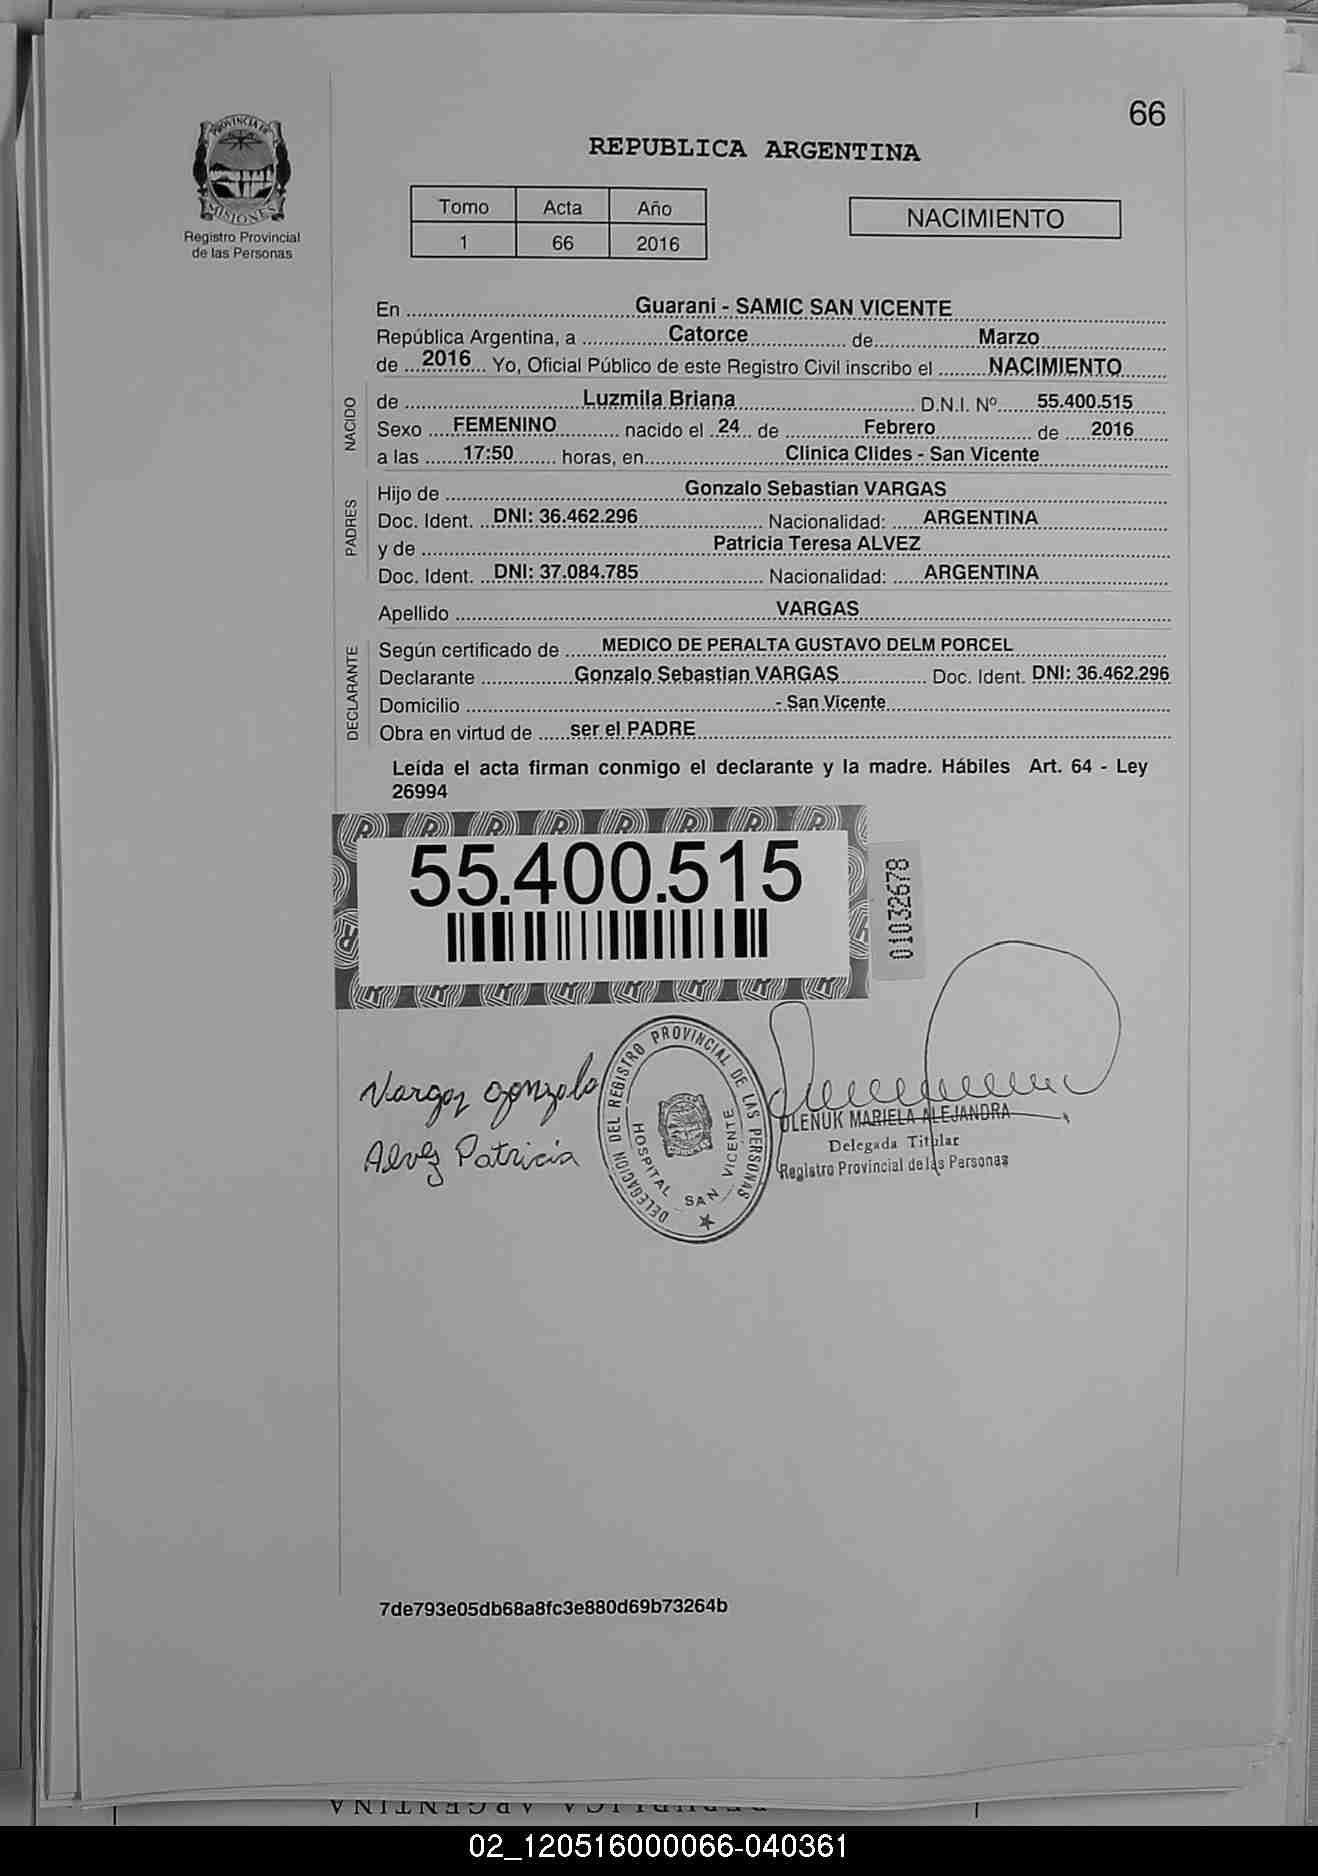 66
PROVINCIA DE
MISIONES
Registro Provincial
de las Personas
REPUBLICA ARGENTINA
Tomo Acta Año
1 66 2016
NACIMIENTO
En Guarani - SAMIC SAN VICENTE
República Argentina, a Catorce de Marzo
de 2016 Yo, Oficial Público de este Registro Civil inscribo el NACIMIENTO
NACIDO
de Luzmila Briana D.N.I. Nº 55.400.515
Sexo FEMENINO nacido el 24 de Febrero de 2016
a las 17:50 horas, en Clinica Clides - San Vicente
PADRES
Hijo de Gonzalo Sebastian VARGAS
Doc. Ident. DNI: 36.462.296 Nacionalidad: ARGENTINA
y de Patricia Teresa ALVEZ
Doc. Ident. DNI: 37.084.785 Nacionalidad: ARGENTINA
Apellido VARGAS
DECLARANTE
Según certificado de MEDICO DE PERALTA GUSTAVO DELM PORCEL
Declarante Gonzalo Sebastian VARGAS Doc. Ident. DNI: 36.462.296
Domicilio - San Vicente
Obra en virtud de ser el PADRE
Leída el acta firman conmigo el declarante y la madre. Hábiles Art. 64 - Ley
26994
55.400.515
01032678
Vargas Gonzalo
Alvez Patricia
DELEGACION DEL REGISTRO PROVINCIAL DE LAS PERSONAS
HOSPITAL SAN VICENTE
OLENUK MARIELA ALEJANDRA
Delegada Titular
Registro Provincial de las Personas
7de793e05db68a8fc3e880d69b73264b
REPUBLICA ARGENTINA
02_120516000066-040361